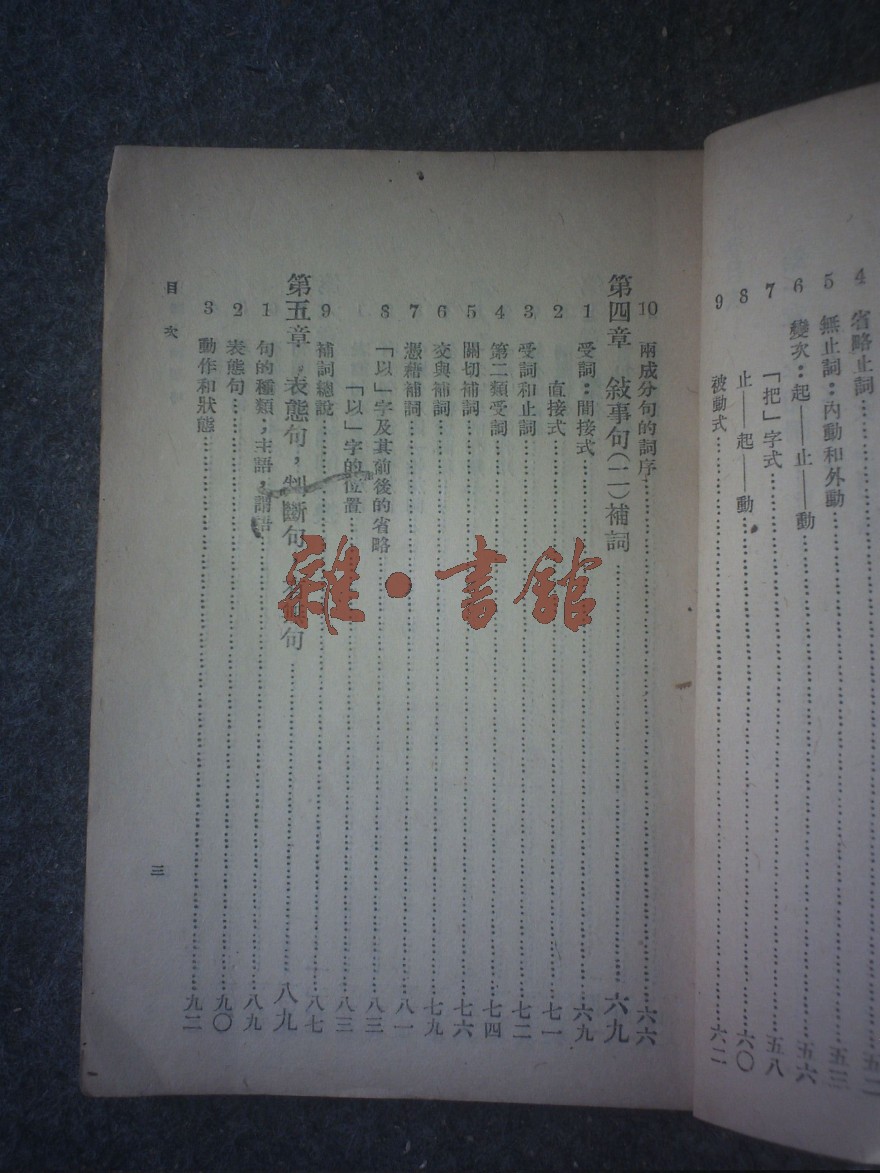 4 省略止詞
5 無止詞：內動和外動 五三
6 變次：起——止——動 五六
7 「把」字式 五八
8 止——起——動 六〇
9 被動式 六二
10 兩成分句的詞序 六六
第四章 敍事句(二)補詞 六九
1 受詞：間接式 六九
2 直接式 七一
3 受詞和止詞 七二
4 第二類受詞 七四
5 關切補詞 七六
6 交與補詞 七九
7 憑藉補詞 八一
8 「以」字及其前後的省略 八三
「以」字的位置 八三
9 補詞總說 八七
第五章 表態句，判斷句 句 八九
1 句的種類；主語，謂語 八九
2 表態句 九〇
3 動作和狀態 九二
目次
三
雜·書館